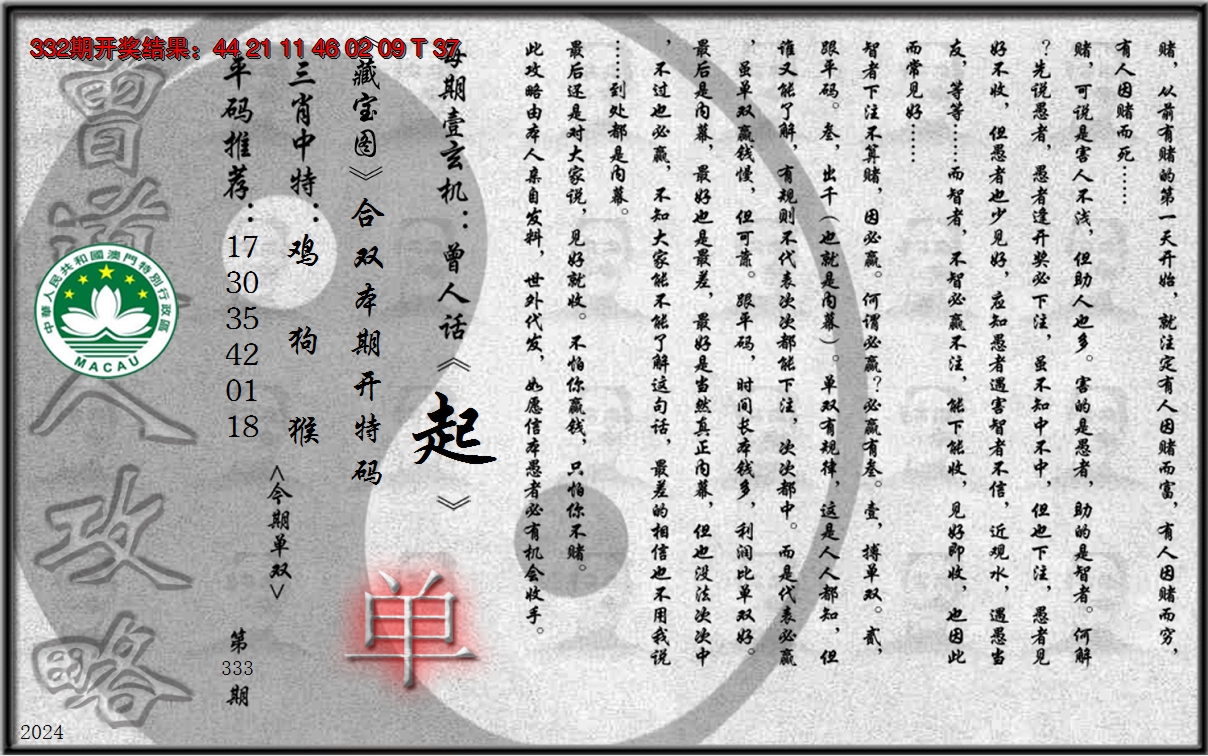 332期开奖结果：44 21 11 46 02 09 T 37
赌，从前有赌的第一天开始，就注定有人因赌而富，有人因赌而穷，
有人因赌而死……
赌，可说是害人不浅，但助人也多。害的是愚者，助的是智者。何解
？先说愚者，愚者逢开奖必下注，虽不知中不中，但也下注，愚者见
好不收，但愚者也少见好，应知愚者遇害智者不信，近观水，遇愚当
友，等等……而智者，不智必赢不注，能下能收，见好即收，也因此
而常见好……
智者下注不算赌，因必赢。何谓必赢？必赢有叁。壹，搏单双。贰，
跟平码。叁，出千（也就是内幕）。单双有规律，这是人人都知，但
谁又能了解，有规则不代表次次都能下注，次次都中。而是代表必赢
，虽单双赢钱慢，但可靠。跟平码，时间长本钱多，利润比单双好。
最后是内幕，最好也是最差，最好是当然真正内幕，但也没法次次中
，不过也必赢，不知大家能不能了解这句话，最差的相信也不用我说
……到处都是内幕。
最后还是对大家说，见好就收。不怕你赢钱，只怕你不赌。
此攻略由本人亲自发料，世外代发，如愿信本愚者必有机会收手。
每期壹玄机：曾人话《起》
《藏宝图》合双本期开特码
单
三肖中特：鸡 狗 猴
<今期单双>
平码推荐：17 30 35 42 01 18
第333期
曾道人攻略
中華人民共和國澳門特別行政區
MACAU
2024